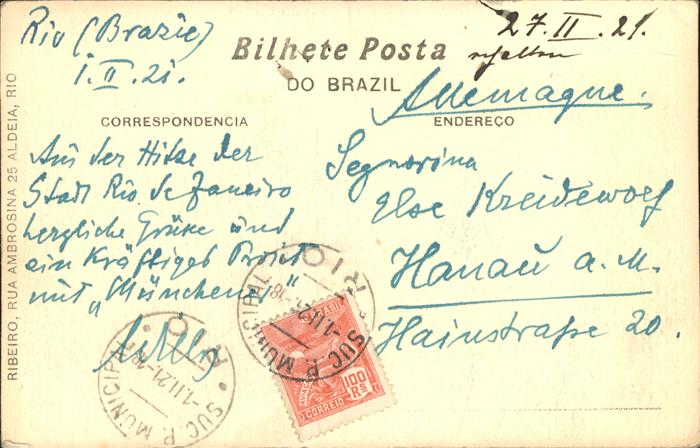 Rio (Brazil)
1.II.21.
27.II.21.
erhalten
Bilhete Posta
DO BRAZIL
CORRESPONDENCIA
ENDEREÇO
Allemagne.
Aus der Hitze der
Stadt Rio de Janeiro
herzliche Grüße und
ein kräftiges Prosit
mit „Münchener"
Willy
Segnorina
Else Kreidewolf
Hanau a. M.
Hainstraße 20.
RIBEIRO, RUA AMBROSINA 25 ALDEIA, RIO
RIO
SUC. P. MUNICIPAL
-1.II.21-18
RIO
SUC. P. MUNICIPAL
-1.II.21-18
BRASIL
100 Rs
CORREIO